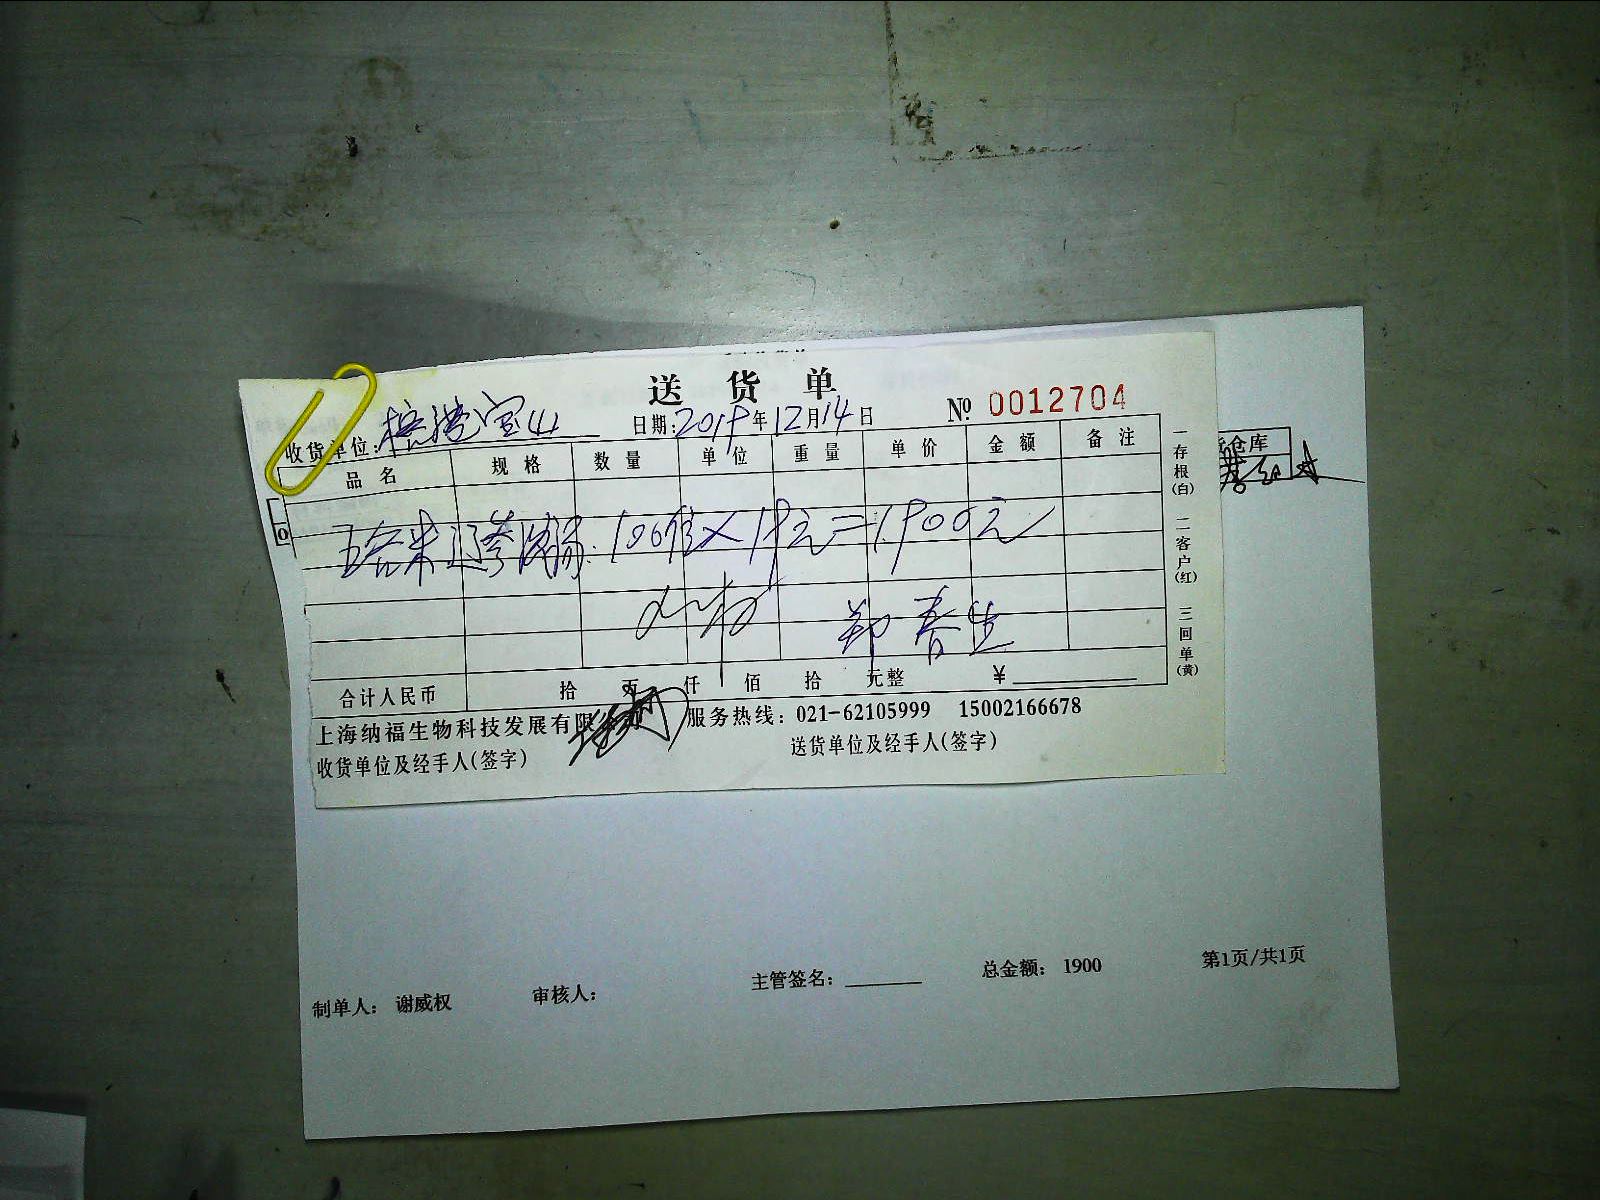 送货单
收货单位: 宝山 日期: 2019年12月14日 № 0012704
品名 规格 数量 单位 重量 单价 金额 备注
100 × 19元=1900元
郑春生
合计人民币 拾 万 仟 佰 拾 元整 ¥
上海纳福生物科技发展有限公司 服务热线: 021-62105999 15002166678
收货单位及经手人(签字) 送货单位及经手人(签字)
一存根(白) 二客户(红) 三回单(黄)
仓库
制单人: 谢威权 审核人: 主管签名: 总金额: 1900 第1页/共1页